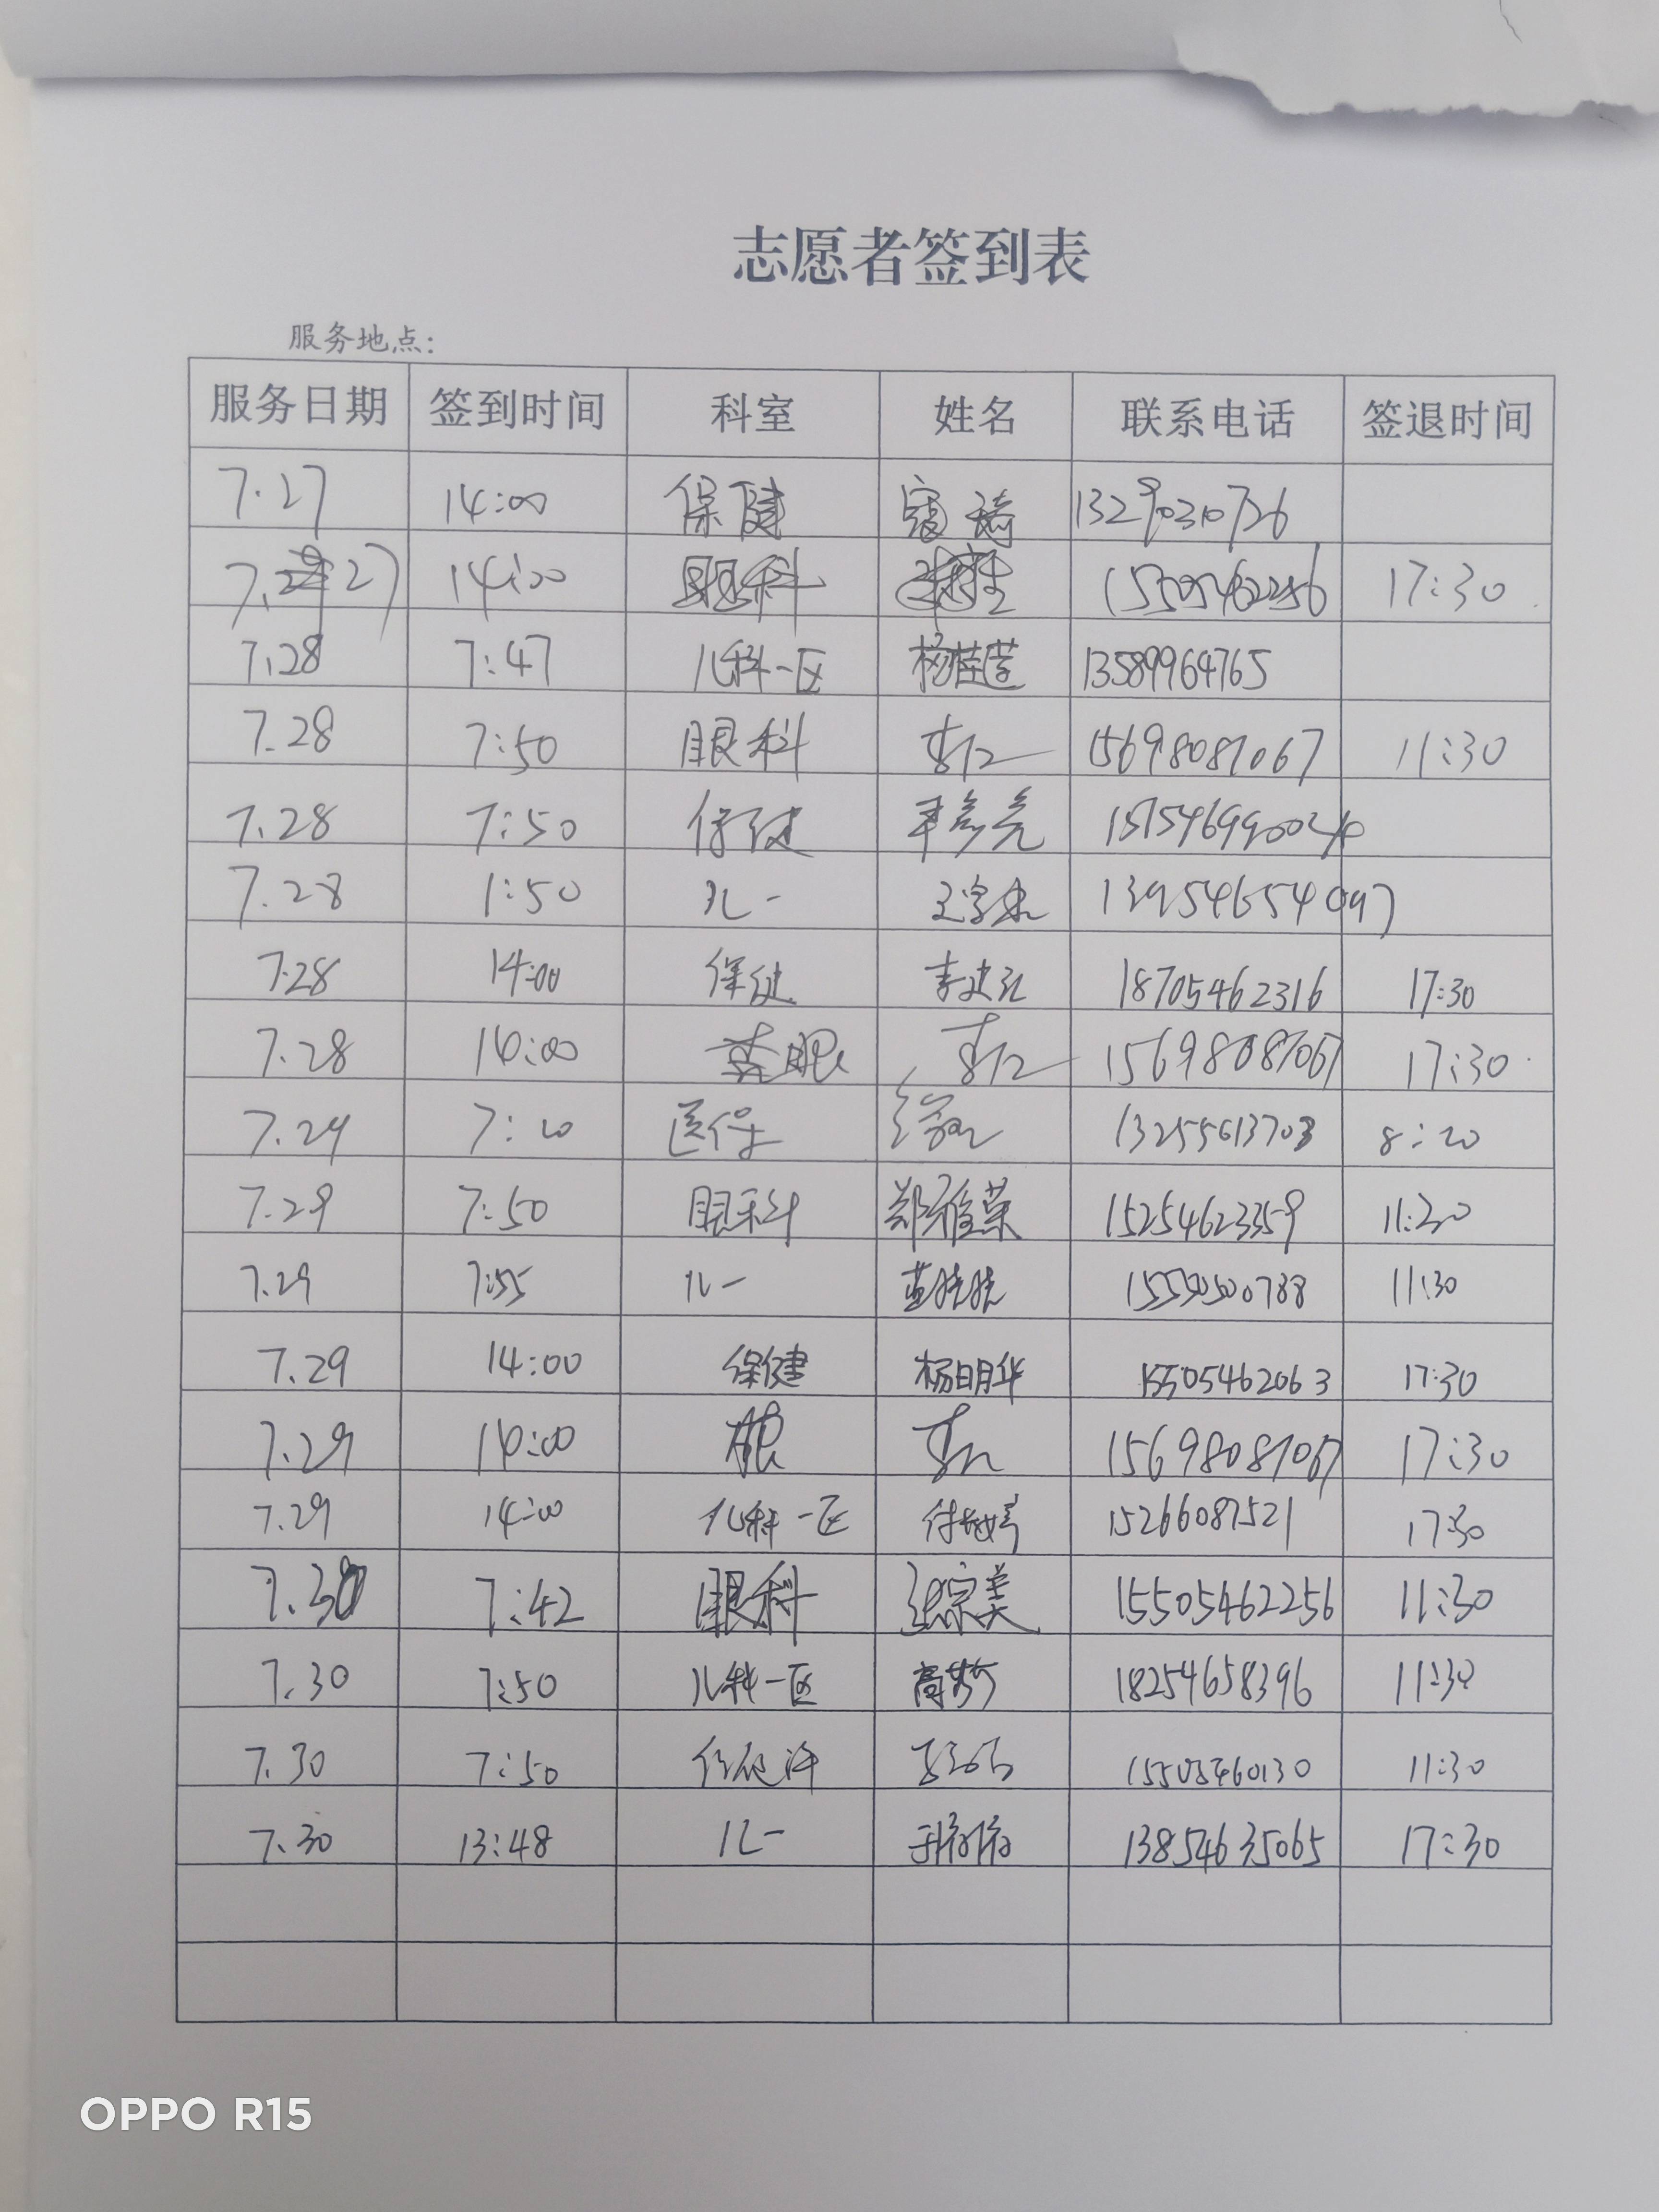 志愿者签到表
服务地点:
服务日期 签到时间 科室 姓名 联系电话 签退时间
7.27 14:00 保健 寇琦 13290310726
7.27 14:00 眼科 15505462256 17:30
7.28 7:47 儿科一区 杨桂莲 13589964765
7.28 7:50 眼科 15698087067 11:30
7.28 7:50 保健
7.28 1:50 儿一 13954654097
7.28 14:00 保健 18705462316 17:30
7.28 14:00 眼 15698087067 17:30
7.29 7:20 医保 13255613703 8:20
7.29 7:50 眼科 郑雅荣 15254623359 11:30
7.29 7:55 儿一 11:30
7.29 14:00 保健 杨明华 15505462063 17:30
7.29 14:00 眼 15698087067 17:30
7.29 14:00 儿科一区 15266087521 17:30
7.30 7:42 眼科 张宗美 15505462256 11:30
7.30 7:50 儿科一区 18254658396 11:30
7.30 7:50 15505460130 11:30
7.30 13:48 儿一 13854635065 17:30
OPPO R15